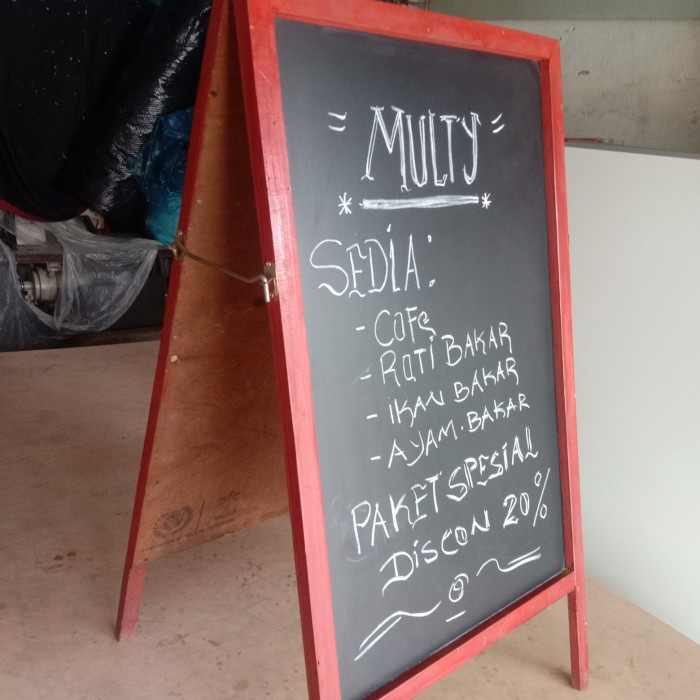 = MULTY =
* *
SEDIA:
- COFE
- ROTI BAKAR
- IKAN BAKAR
- AYAM. BAKAR
PAKET SPESIAL
DISCON 20%